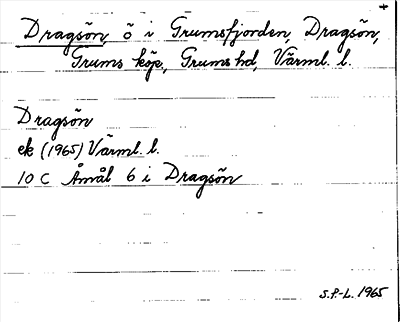 Dragsön, ö i Grumsfjorden, Dragsön,
Grums köp., Grums hd, Värml. l.
Dragsön
ek (1965) Värml. l.
10 C Åmål 6 i Dragsön
S.F.-L. 1965